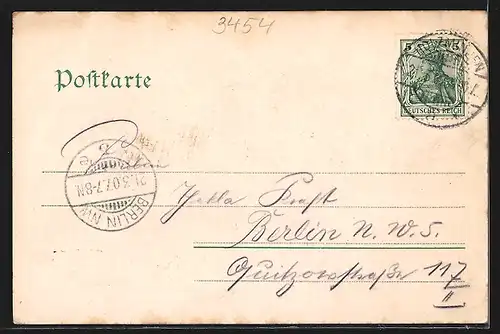 3454
5 5
DEUTSCHES REICH
Postkarte
21.3.07.7-8N
BERLIN NW
Kraft
Berlin N.W.5.
Quitzowstraße 117
II